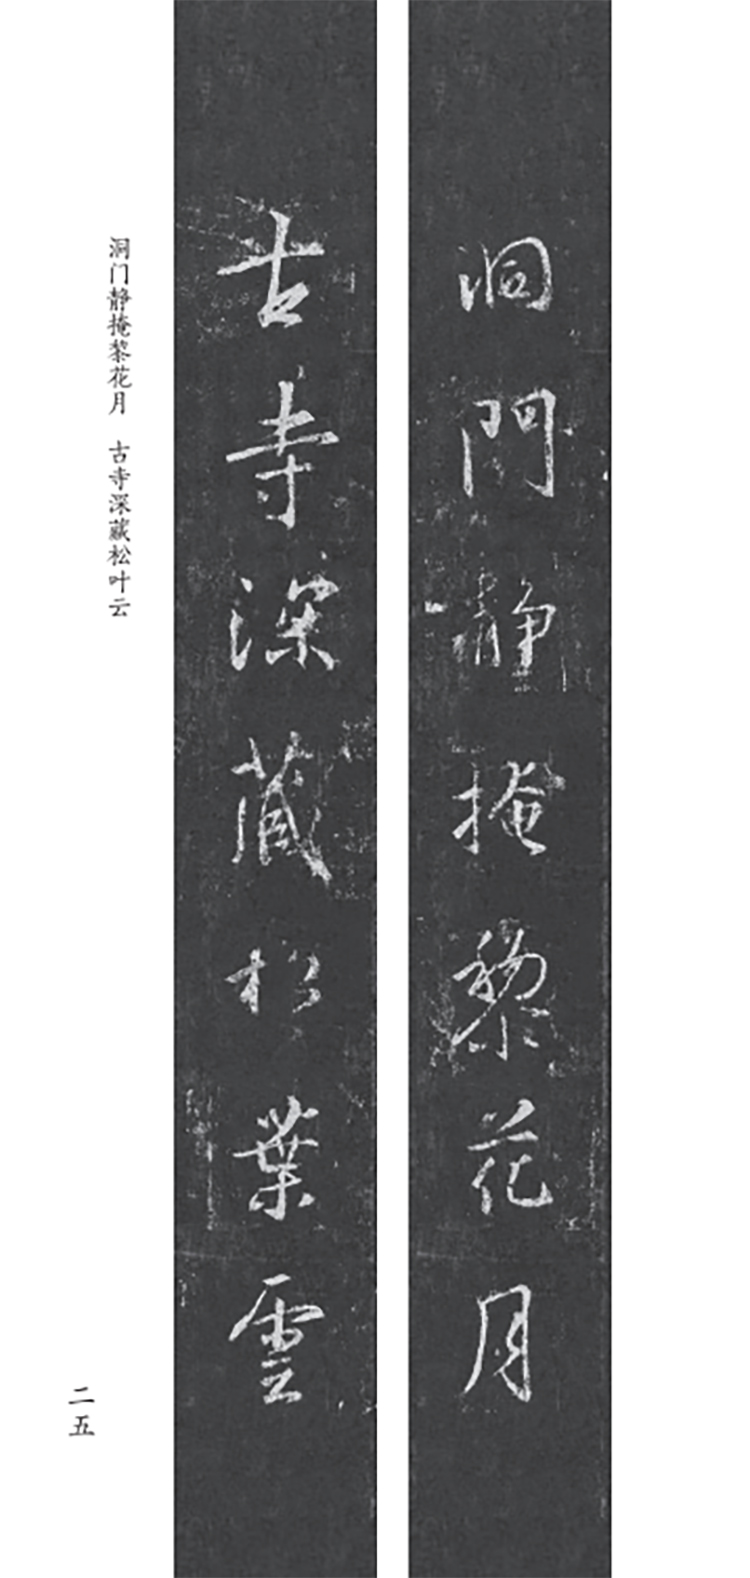 洞門靜掩黎花月
古寺深藏松葉雲
洞门静掩黎花月　古寺深藏松叶云
二五